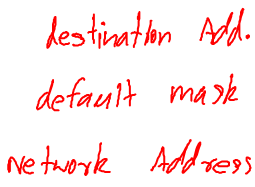 destination Add.
default mask
Network Address